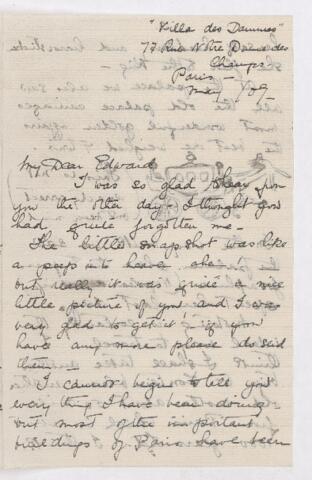 "Villa des Dammes"
77 Rue Nôtre Dame des
Champs -
Paris -
May /09 -
My Dear Edward
I was so glad to hear from
you the other day - I thought you
had quite forgotten me -
The little snap shot was like
a peep into heaven ahem!
but really it was quite a nice
little picture of you and I was
very glad to get it; if you
have any more please do send
them -
I cannot begin to tell you
everything I have been doing
but most of the important
buildings of Paris have been